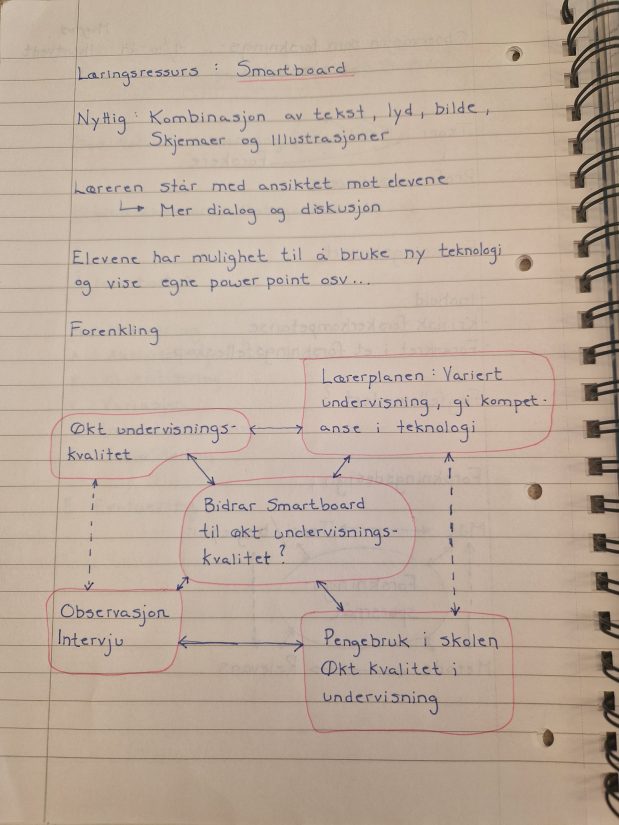 Læringsressurs : Smartboard
Nyttig : Kombinasjon av tekst, lyd, bilde,
Skjemaer og Illustrasjoner
Læreren står med ansiktet mot elevene
↳ Mer dialog og diskusjon
Elevene har mulighet til å bruke ny teknologi
og vise egne power point osv...
Forenkling
Lærerplanen : Variert
undervisning, gi kompet-
anse i teknologi
Økt undervisnings-
kvalitet
Bidrar Smartboard
til økt undervisnings-
kvalitet?
Observasjon
Intervju
Pengebruk i skolen
Økt kvalitet i
undervisning